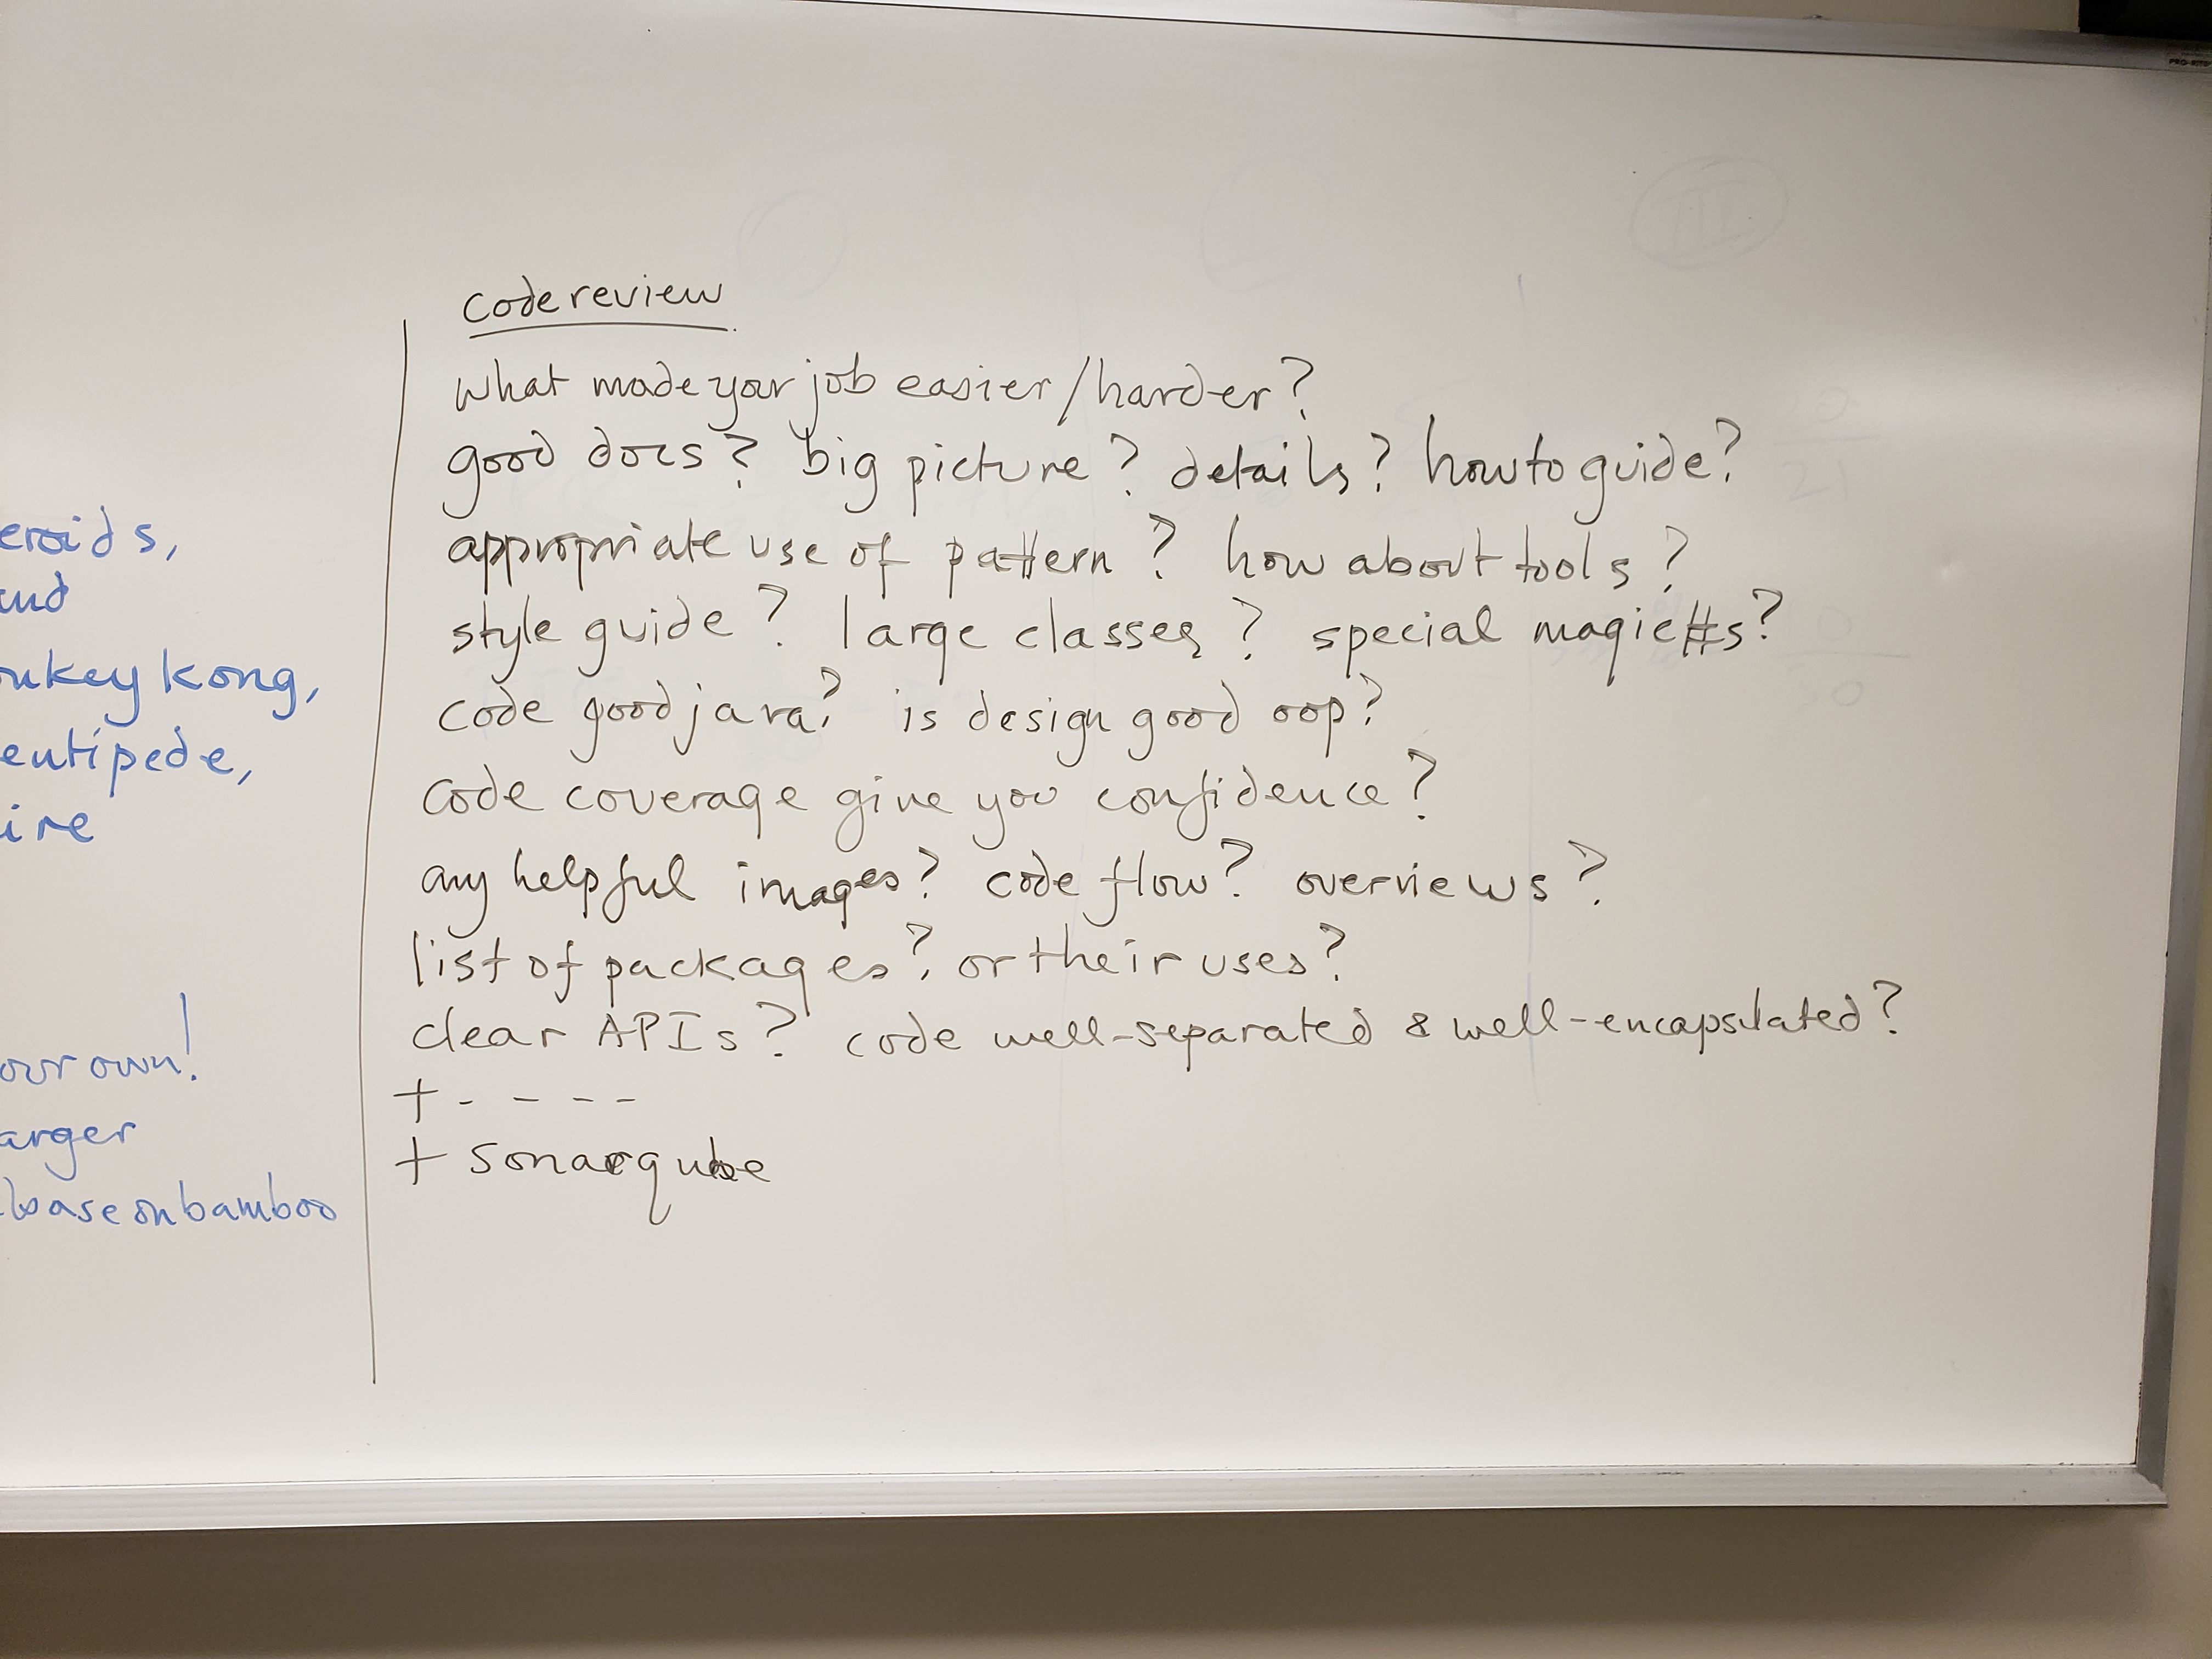 eroids,
and
onkey kong,
entipede,
ire
our own!
arger
base on bamboo
code review
what made your job easier/harder?
good docs? big picture? details? how to guide?
appropriate use of pattern? how about tools?
style guide? large classes? special magic #s?
code good java? is design good oop?
code coverage give you confidence?
any helpful images? code flow? overviews?
list of packages? or their uses?
clear APIs? code well-separated & well-encapsulated?
+ - - - -
+ sonarqube
I
II
III
21